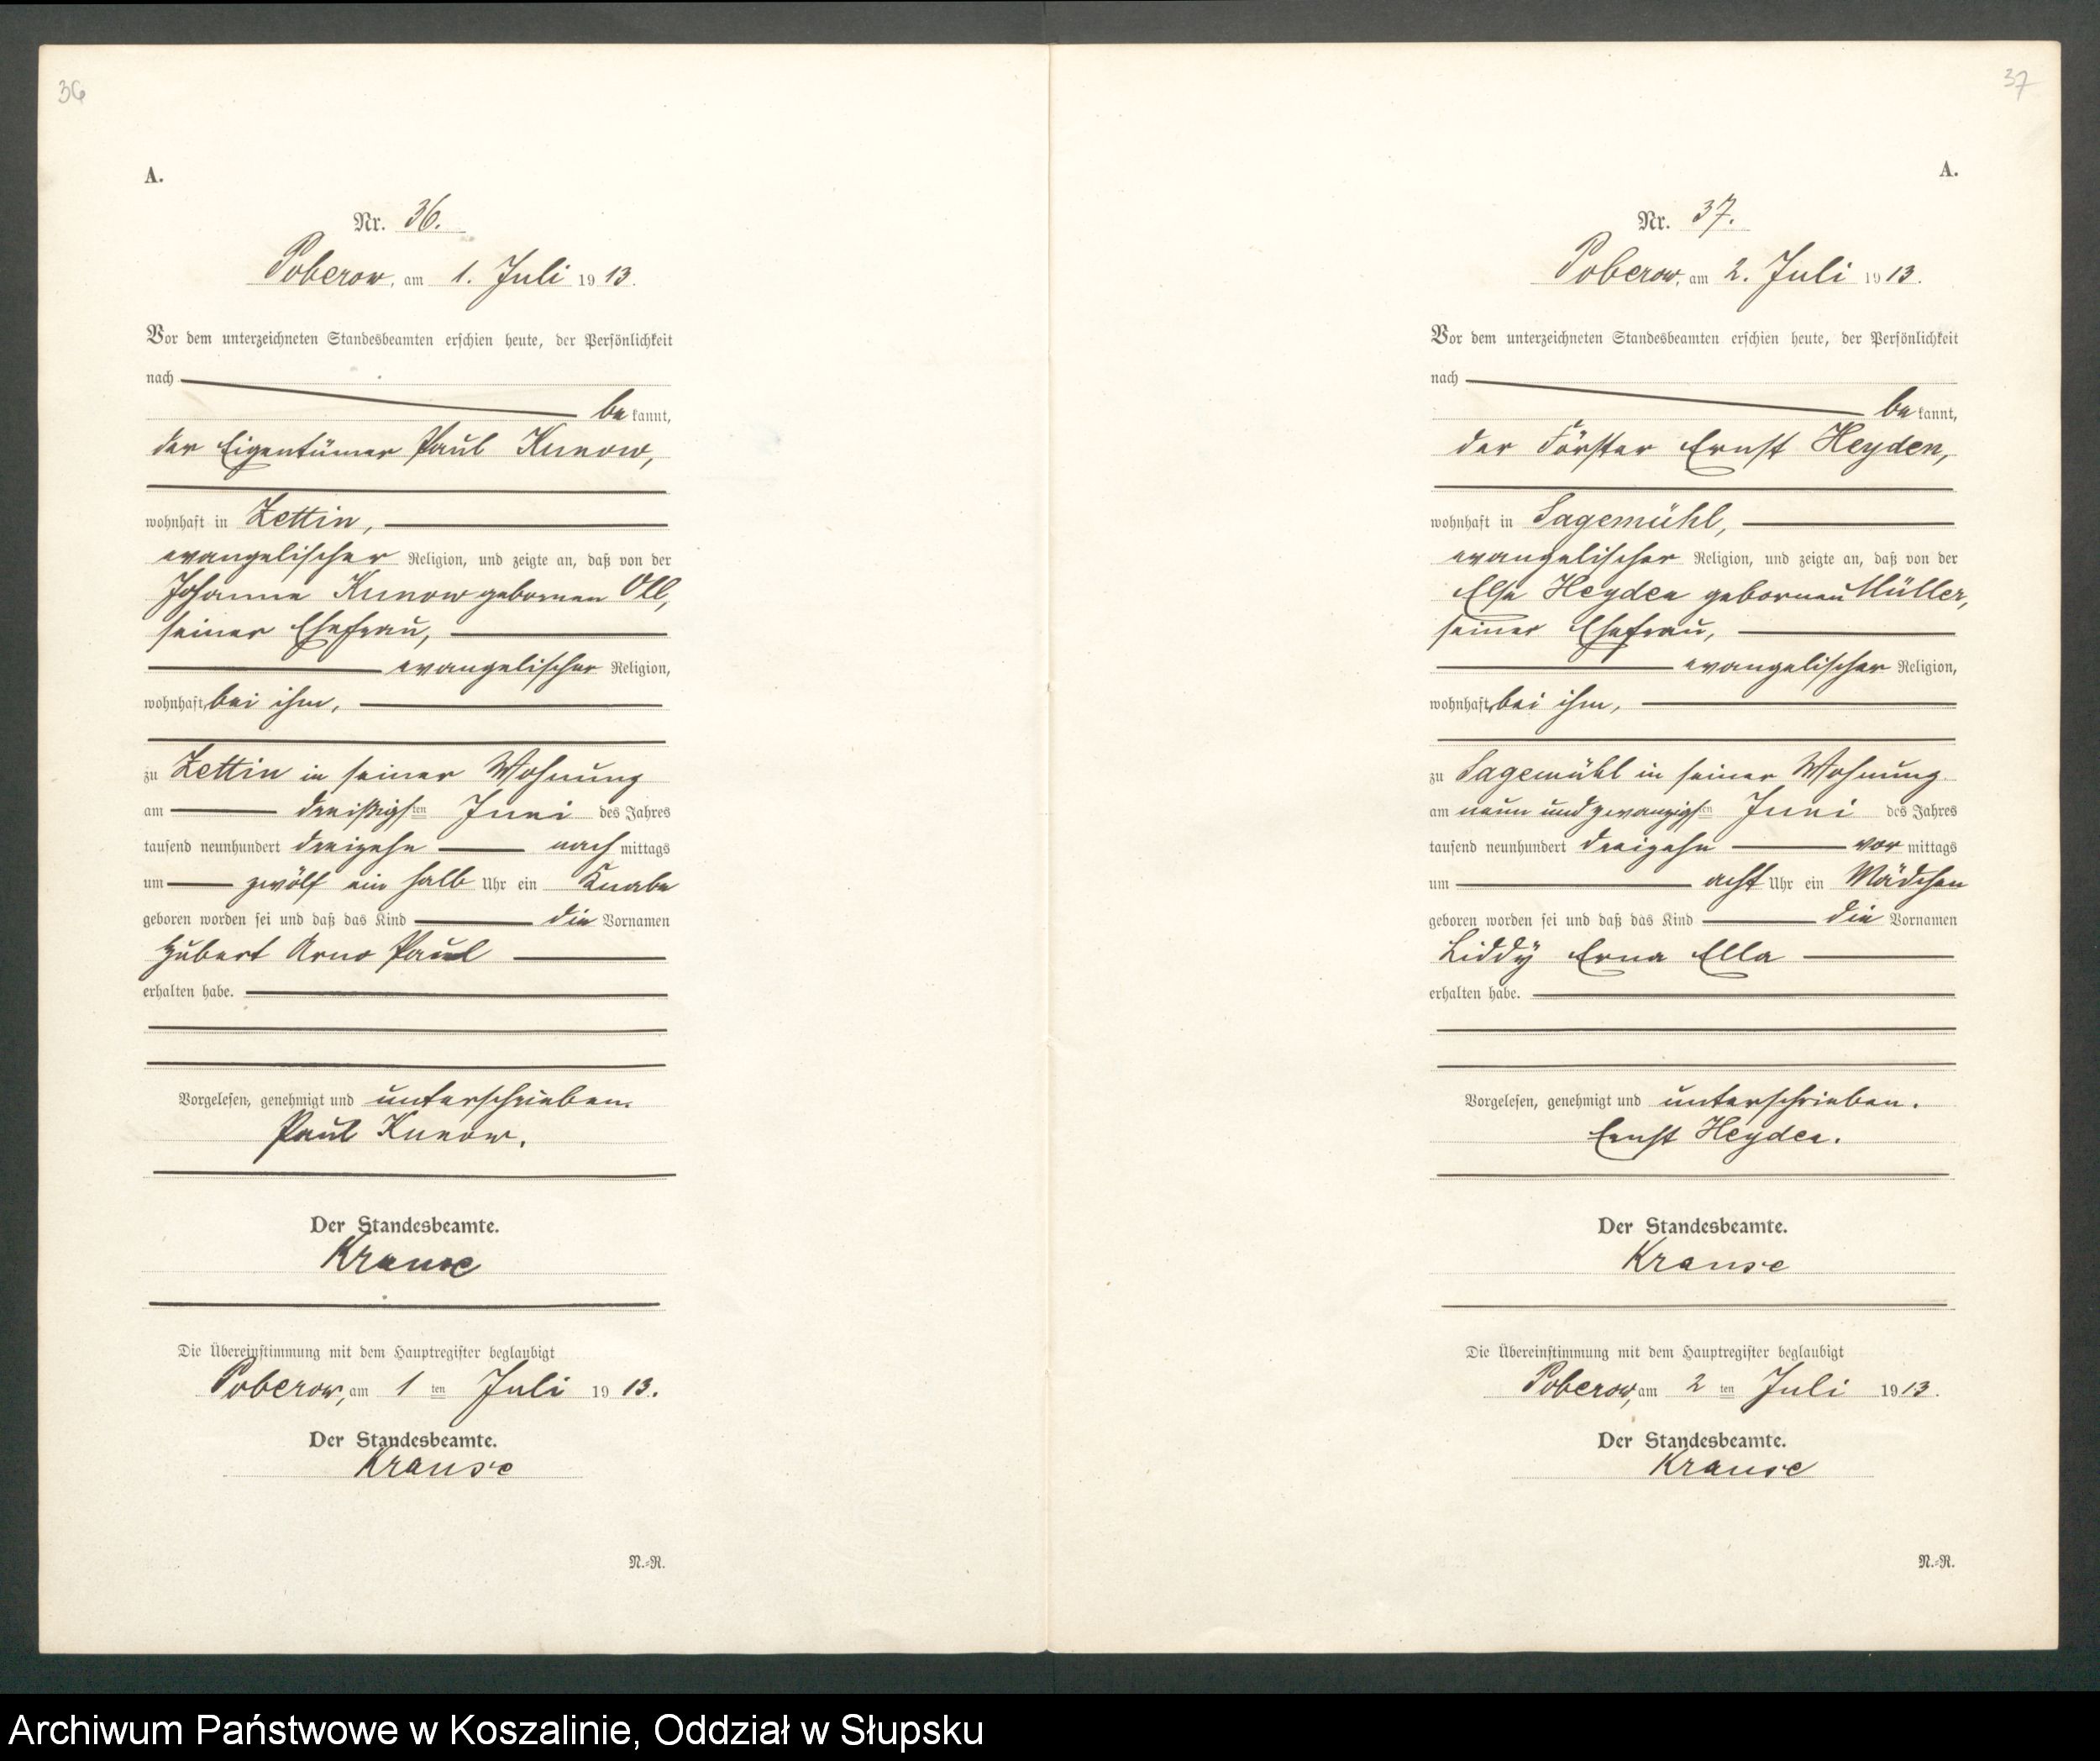 36
A.
Nr. 36.
Poberow, am 1. Juli 1913.
Vor dem unterzeichneten Standesbeamten erschien heute, der Persönlichkeit
nach
bekannt,
der Eigentümer Paul Kunow,
wohnhaft in Zettin,
evangelischer Religion, und zeigte an, daß von der
Johanne Kunow gebornen Oll,
seiner Ehefrau,
evangelischer Religion,
wohnhaft, bei ihm,
zu Zettin in seiner Wohnung
am dreißigsten Juni des Jahres
tausend neunhundert dreizehn nachmittags
um zwölf ein halb Uhr ein Knabe
geboren worden sei und daß das Kind die Vornamen
Hubert Arno Paul
erhalten habe.
Vorgelesen, genehmigt und unterschrieben.
Paul Kunow.
Der Standesbeamte.
Krause
Die Übereinstimmung mit dem Hauptregister beglaubigt
Poberow, am 1ten Juli 1913.
Der Standesbeamte.
Krause
N.=R.
37
A.
Nr. 37.
Poberow, am 2. Juli 1913.
Vor dem unterzeichneten Standesbeamten erschien heute, der Persönlichkeit
nach
bekannt,
der Förster Ernst Heyden,
wohnhaft in Sagemühl,
evangelischer Religion, und zeigte an, daß von der
Else Heyden gebornen Müller,
seiner Ehefrau,
evangelischer Religion,
wohnhaft, bei ihm,
zu Sagemühl in seiner Wohnung
am neun und zwanzigsten Juni des Jahres
tausend neunhundert dreizehn vormittags
um acht Uhr ein Mädchen
geboren worden sei und daß das Kind die Vornamen
Liddy Erna Ella
erhalten habe.
Vorgelesen, genehmigt und unterschrieben.
Ernst Heyden.
Der Standesbeamte.
Krause
Die Übereinstimmung mit dem Hauptregister beglaubigt
Poberow, am 2ten Juli 1913.
Der Standesbeamte.
Krause
N.=R.
Archiwum Państwowe w Koszalinie, Oddział w Słupsku